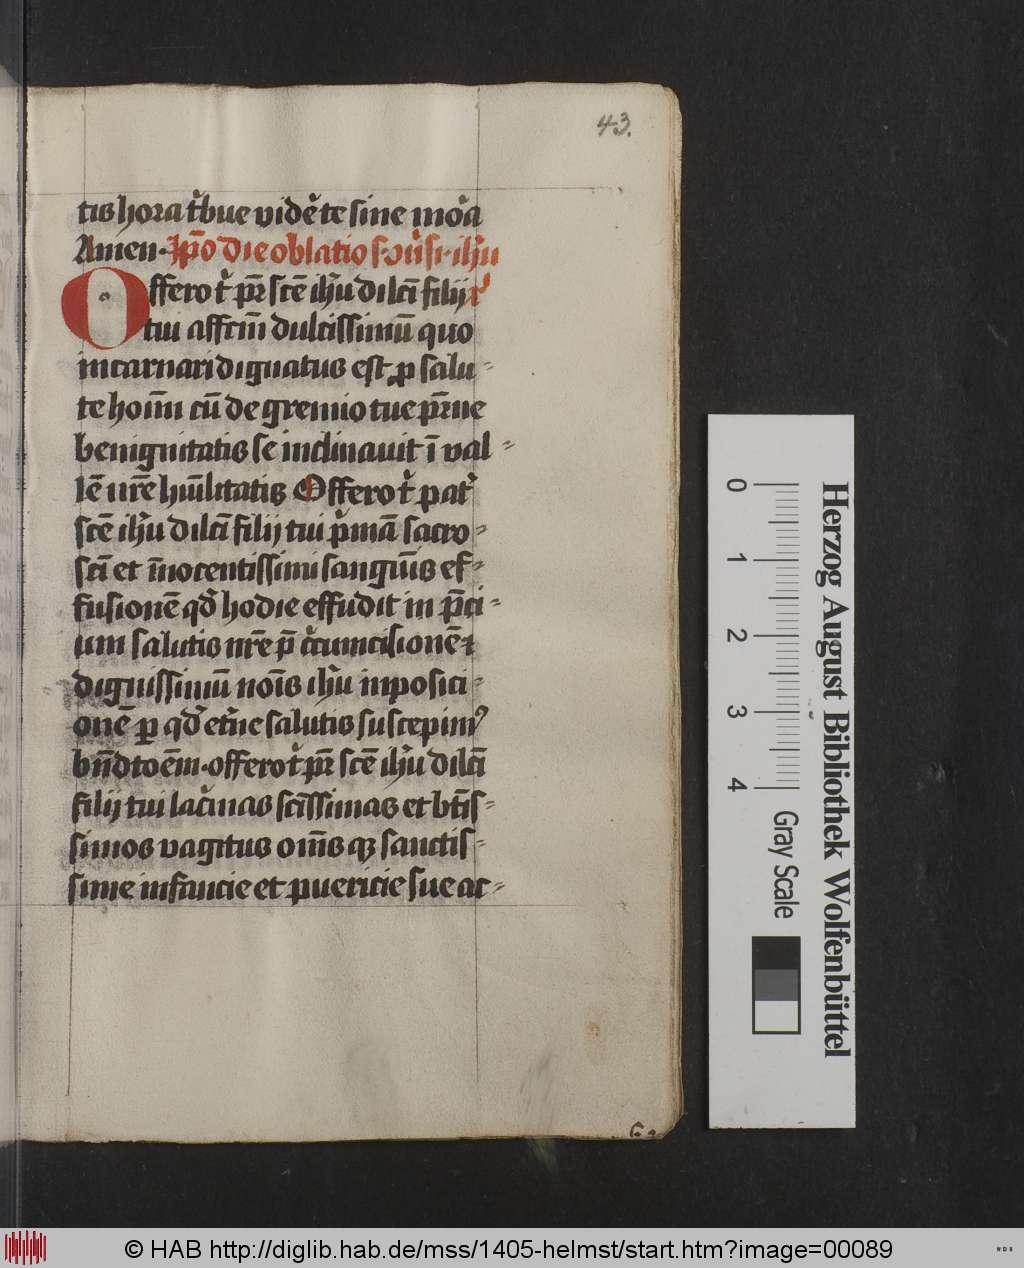 43.
tis hora t̉bue vidẻ te sine mor̉a
Amen. Ip̄o die oblatio
Offero t̉ pr̄ scē ih̉u dilc̄i filij
tui aff̄cm̄ dulcissimū quo
incarnari dignatus est ꝓ salu⸗
te hoīm cū de gremio tue pr̄ne
benignitatis se inclinauit ī val⸗
lē nr̄e hūilitatis Offero t̉ pat̉
scē ih̉u dilc̄i filij tui p̉mā sacro⸗
sc̄i et īnocentissimi sangui̅s ef⸗
fusionē qd̉ hodie effudit in p̄ci⸗
um salutis nr̄e p̄ c̉cumcisionē ⁊
dignissimū noīs ih̉u inposici⸗
onē ꝑ qd̉ et̉ne salutis suscepim᷒
bn̄dtoēm. offero t̉ pr̄ scē ih̉u dilc̄i
filij tui lac̉mas sc̄issimas et bt̄is⸗
simos vagitus om̄s qꝫ sanctis⸗
sime infancie et puericie sue ac⸗
Herzog August Bibliothek Wolfenbüttel
0 1 2 3 4
Gray Scale
© HAB http://diglib.hab.de/mss/1405-helmst/start.htm?image=00089